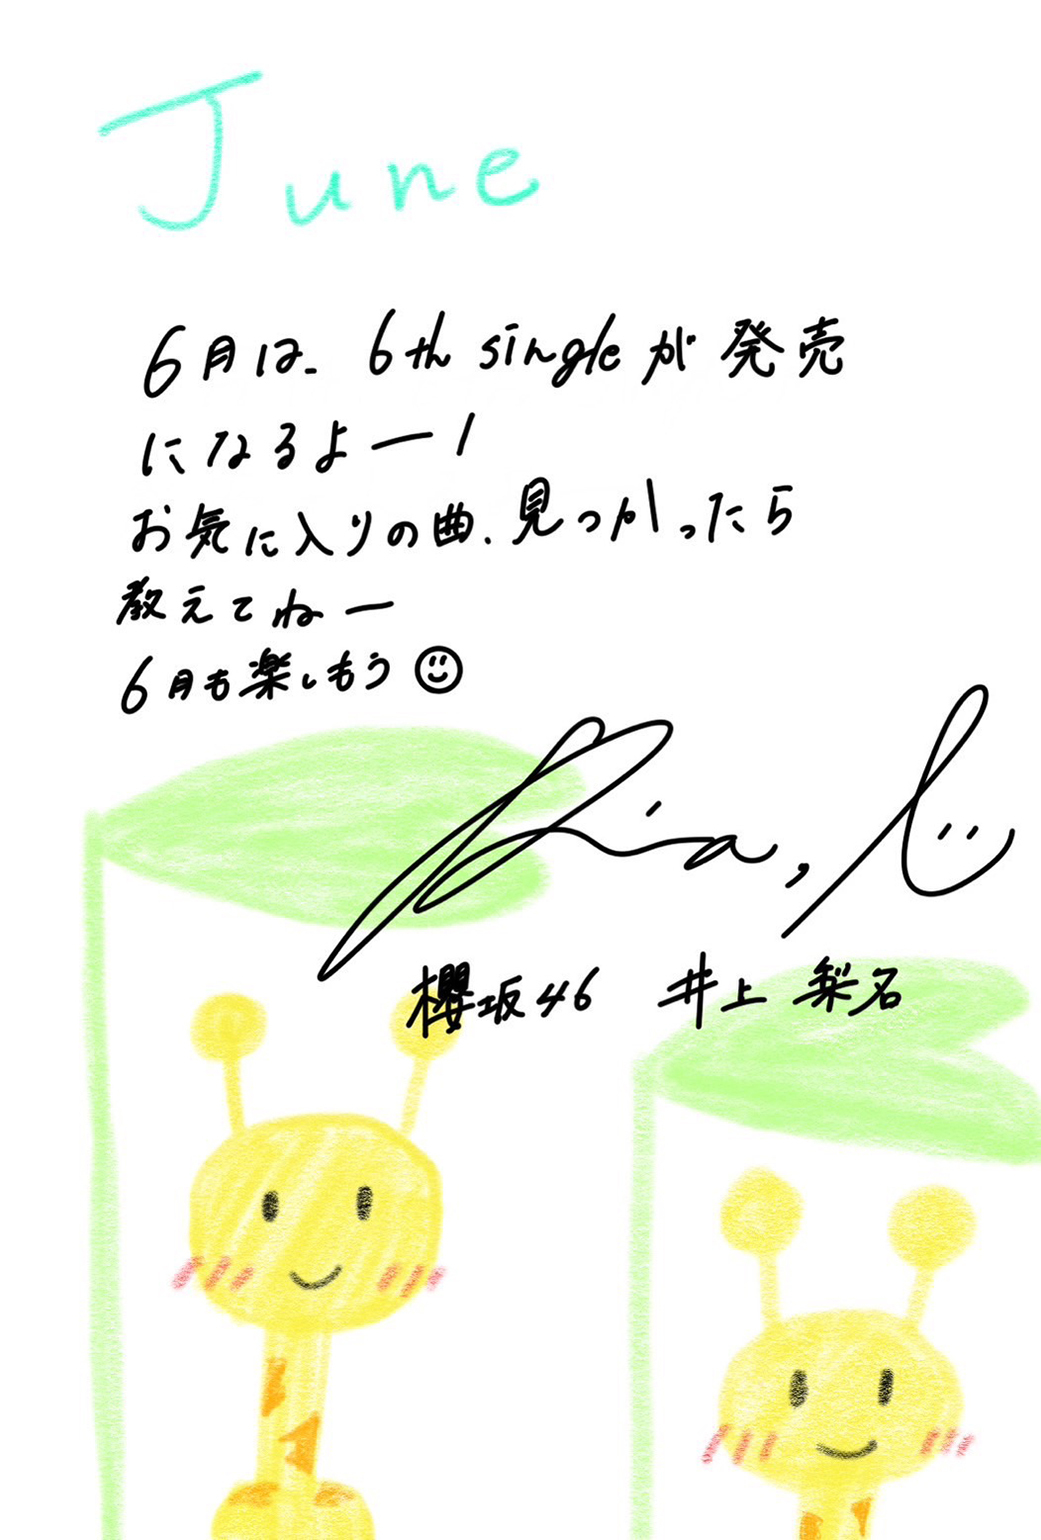 June
6月は、6th singleが発売
になるよー！
お気に入りの曲、見つかったら
教えてねー
6月も楽しもう
Ria,
櫻坂46 井上 梨名